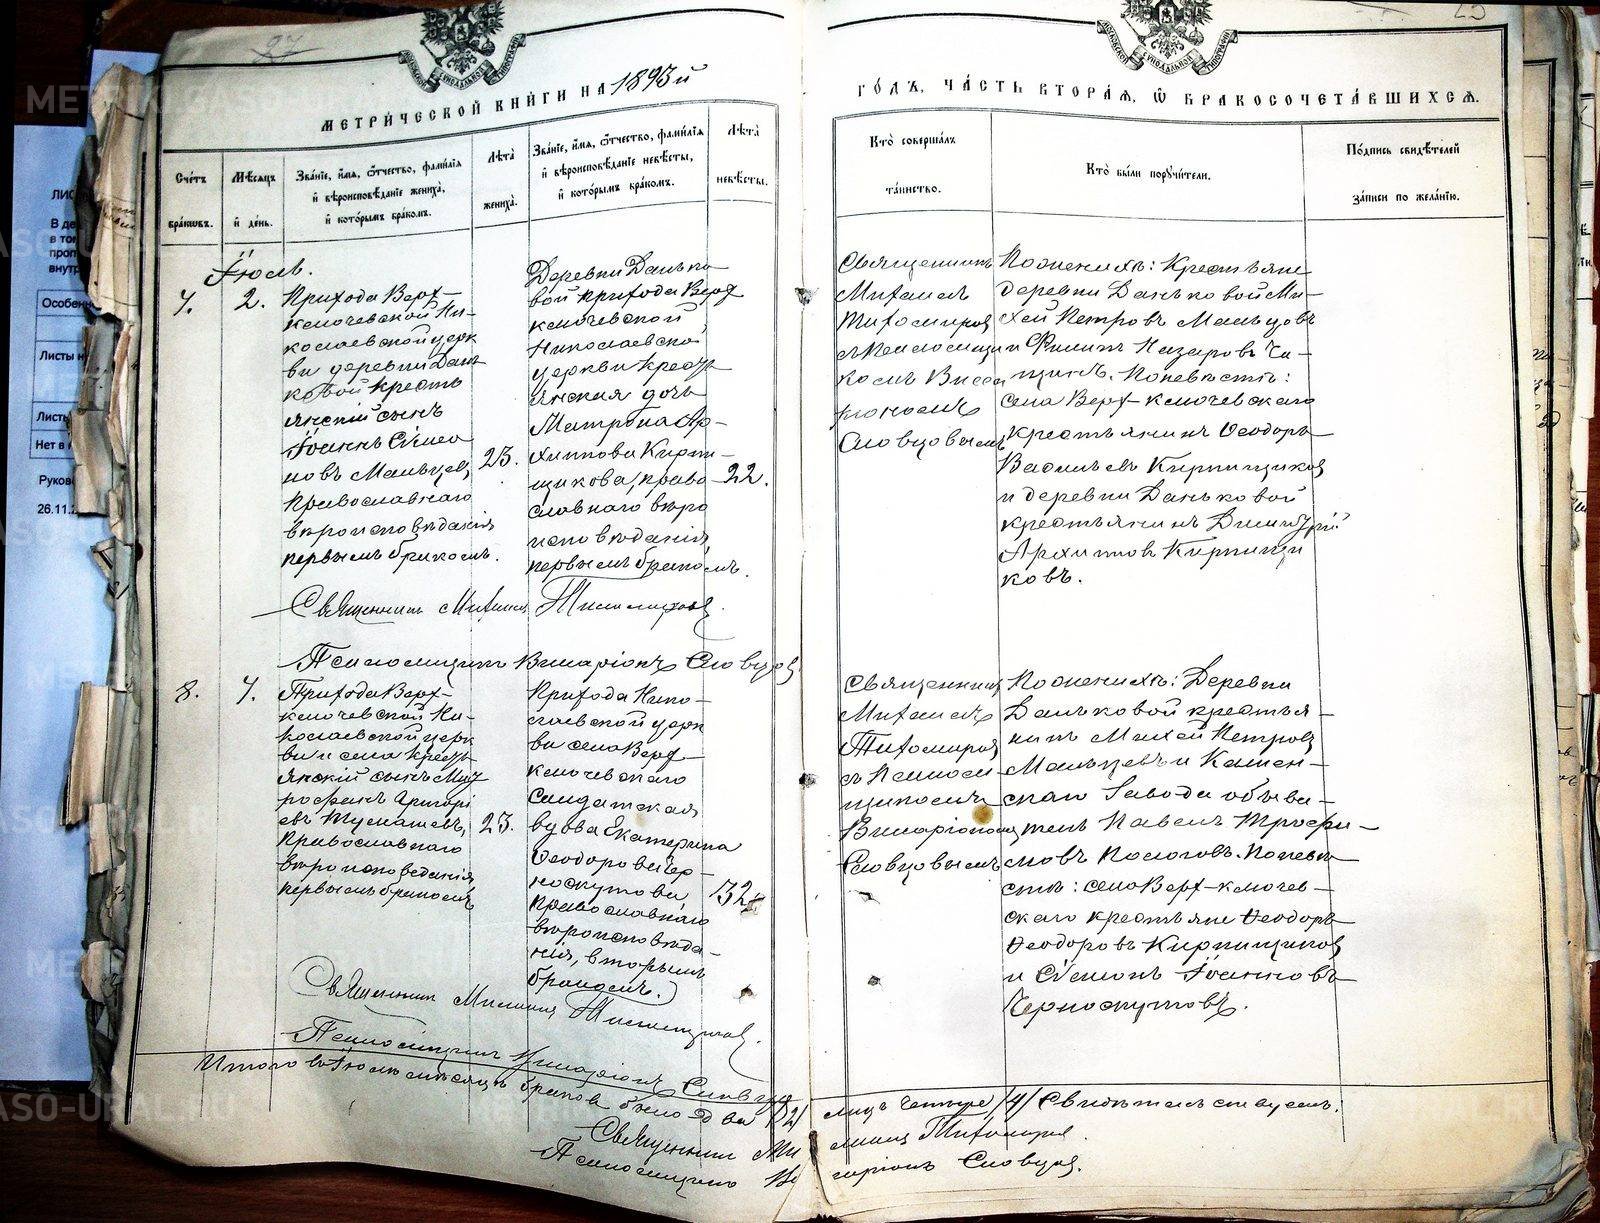 27
МЕТРИЧЕСКОЙ КНИГИ НА 1893й
ГОДЪ, ЧАСТЬ ВТОРАЯ, Ѡ БРАКОСОЧЕТАВШИХСЯ.
Счетъ браковъ.
Мѣсяцъ и день.
Званіе, имя, отчество, фамилія
и вѣроисповѣданіе жениха,
и которымъ бракомъ.
Лѣта жениха.
Званіе, имя, отчество, фамилія
и вѣроисповѣданіе невѣсты,
и которымъ бракомъ.
Лѣта невѣсты.
Кто совершалъ
таинство.
Кто были поручители.
Подпись свидѣтелей
записи по желанію.
Іюль.
7.
2.
Прихода Верх-
ключевской Ни-
колаевской церк
ви деревни Дань
ковой кресть
янскій сынъ
Іоаннъ Симео
новъ Мальцев,
православнаго
вѣроисповѣданія
первымъ бракомъ.
23.
Деревни Данько
вой прихода Верх
ключевской
Николаевской
церкви кресть
янская дочь
Матрона Ар-
хиппова Кирпи-
щикова, право
славнаго вѣро
исповѣданія,
первымъ бракомъ.
22.
Священникъ
Михаилъ
Тихомиров
съ Псаломщи
комъ Висса
ріономъ
Словцовымъ
По женихѣ: Крестьяне
деревни Даньковой Ми-
хей Петровъ Мальцовъ
и Филипъ Назаровъ
По невѣстѣ:
села Верх-ключевскаго
крестьянинъ Ѳеодоръ
Васильевъ Кирпищиков
и деревни Даньковой
крестьянинъ Димитрій
Архиповъ Кирпищи
ковъ.
Священникъ Михаилъ Тихомиров.
Псаломщикъ Виссаріонъ Словцов.
8.
7.
Прихода Верх-
ключевской Ни-
колаевской церк
ви и села кресть
янскій сынъ Мит
рофанъ Григорі
евъ Тумашевъ,
православнаго
вѣроисповеданія
первымъ бракомъ
23.
Прихода Нико-
лаевской церк
ви села Верх-
ключевскаго
Солдатская
вдова Екатерина
Ѳеодорова Чер-
носкутова,
православнаго
вѣроисповѣда-
нія, вторымъ
бракомъ.
32
Священник
Михаилъ
Тихомиров
съ Псалом
щикомъ
Виссаріоном
Словцовымъ
По женихѣ: Деревни
Даньковой крестья-
нинъ Михей Петров
Мальцевъ и Камен-
скаго Завода обыва-
тель Павелъ Трофи-
мовъ Пологовъ. По невѣ
стѣ: села Верх-ключев-
скаго крестьяне Ѳеодоръ
Ѳеодоровъ Кирпищиков
и Симонъ Іоанновъ
Черноскутовъ.
Священник Михаил Тихомиров.
Псаломщикъ Виссаріонъ Словцов
Итого въ Іюлѣ мѣсяцѣ браковъ было два /2/ лицъ четыре /4/ Свидѣтельствуемъ:
Священник Михаил Тихомиров.
Псаломщикъ Виссаріонъ Словцов.